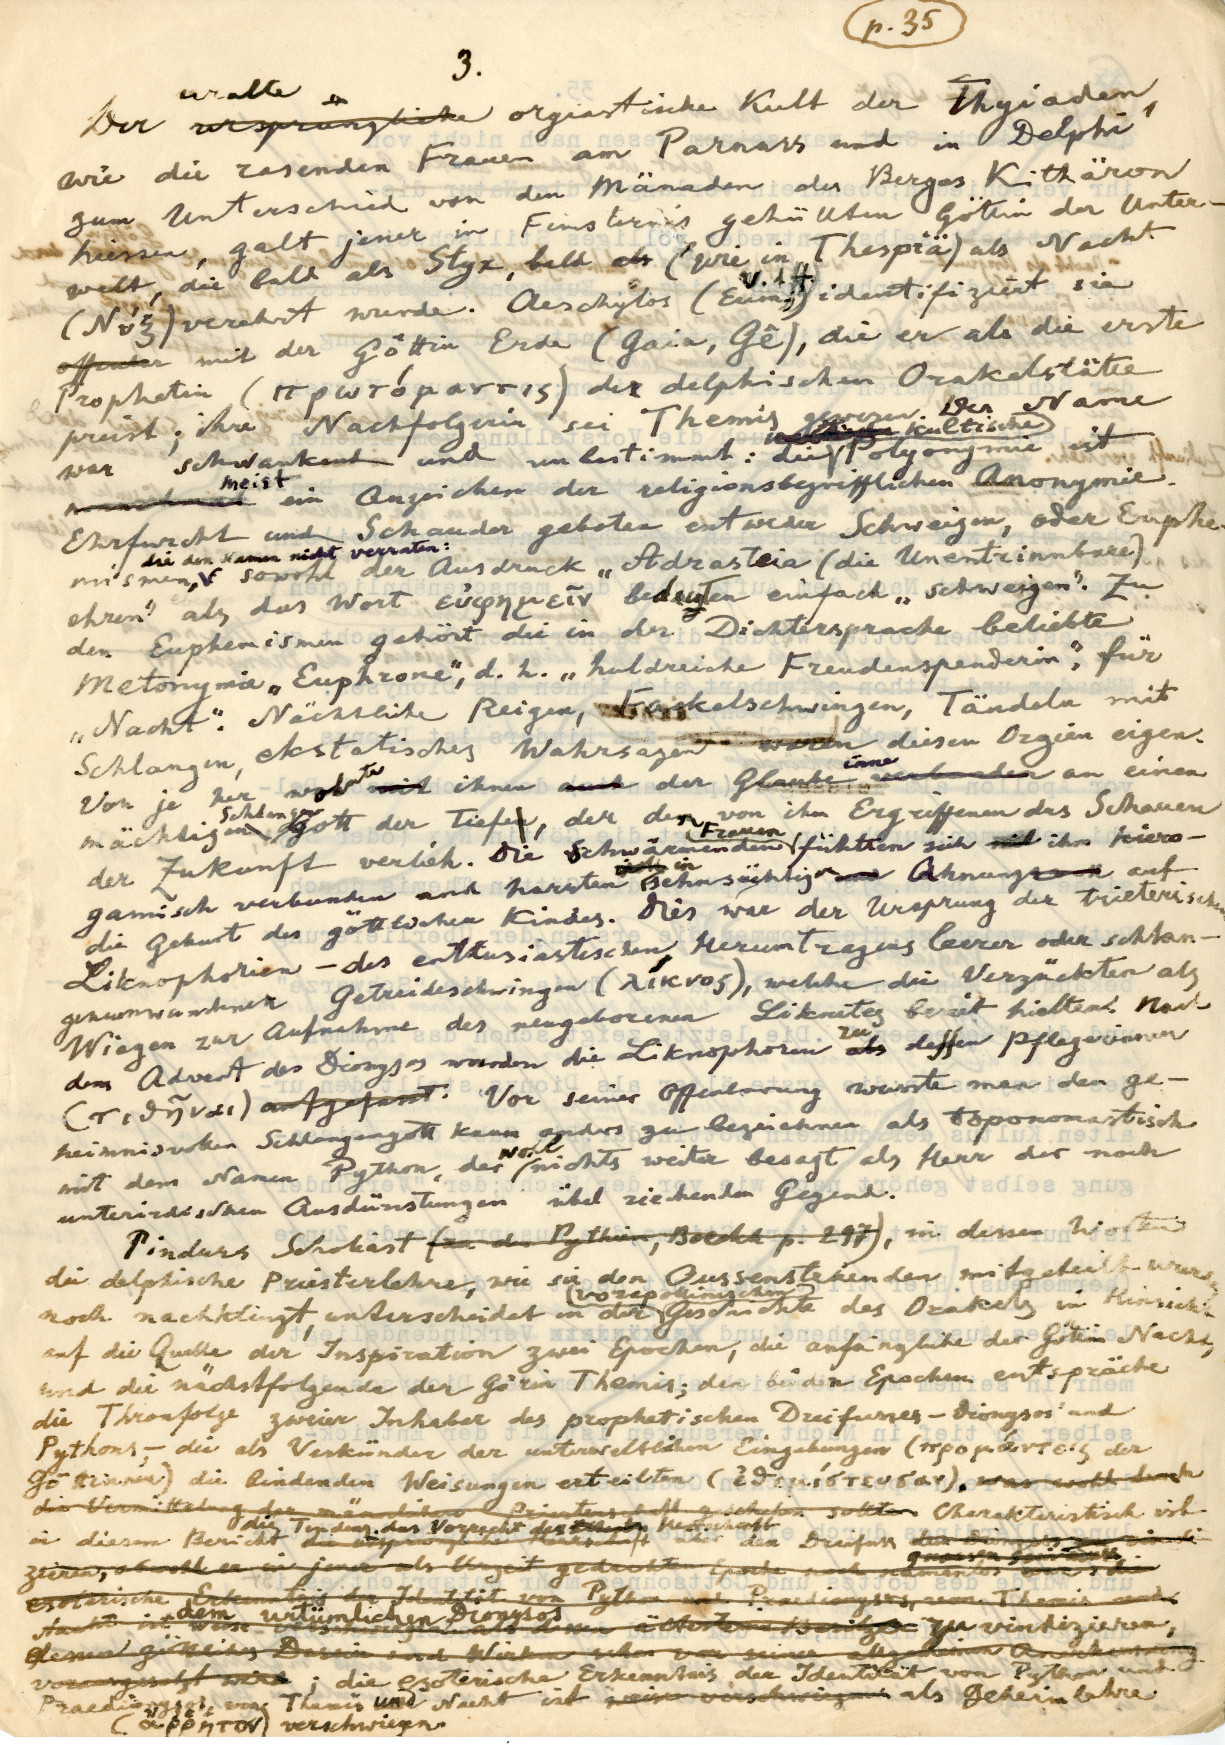 p. 35
3.
uralte
Der ursprüngliche orgiastische Kult der Thyiaden,
wie die rasenden Frauen am Parnass und in Delphi
zum Unterschied von den Mänaden des Berges Kithäron
hiessen, galt jener in Finsternis gehüllten Göttin der Unter-
welt, die bald als Styx, bald als (wie in Thespiä) als Nacht
(Νύξ) verehrt wurde. Aeschylos (Eum. v. 1 ff.) identifiziert sie
offenbar mit der Göttin Erde (Gaia, Gê), die er als die erste
Prophetin (πρωτόμαντις) der delphischen Orakelstätte
preist; ihre Nachfolgerin sei Themis gewesen. Der Name
war schwankend und unbestimmt: die kultische Polyonymie ist
manchmal meist ein Anzeichen der religionsbegrifflichen Anonymie.
Ehrfurcht und Schauder geboten entweder Schweigen, oder Euphe-
die den Namen nicht verraten:
mismen, sowohl der Ausdruck „Adrasteia (die Unentrinnbare)
ehren" als das Wort εὐφημεῖν bedeuten einfach „schweigen". Zu
den Euphemismen gehört die in der Dichtersprache beliebte
Metonymie „Euphrone", d. h. „huldreiche Freudenspenderin", für
„Nacht". Nächtliche Reigen, Fackelschwingen, Tändeln mit
Schlangen, ekstatisches Wahrsagen waren diesen Orgien eigen.
Von je her wohnte mit ihnen auch der Glaube inne verbunden an einen
mächtigen Schlangengott der Tiefe, der den von ihm Ergriffenen das Schauen
der Zukunft verlieh. Die schwärmenden Frauen fühlten sich mit ihm hiero-
gamisch verbunden und harrten in sehnsüchtiger Ahnung auf
die Geburt des göttlichen Kindes. Dies war der Ursprung der trieterischen
Liknophorien – des enthusiastischen Herumtragens leerer oder schlan-
genumwundener Getreideschwingen (λίκνος), welche die Verzückten als
Wiegen zur Aufnahme des neugeborenen Liknites bereit hielten. Nach
dem Advent des Dionysos wurden die Liknophoren als zu dessen Pflegerinnen
(τιθῆναι) aufgefasst. Vor seiner Offenbarung wusste man den ge-
heimnisvollen Schlangengott kaum anders zu bezeichnen als toponomastisch
mit dem Namen Python, der wohl nichts weiter besagt als Herr der nach
unterirdischen Ausdünstungen übel riechenden Gegend.
Pindars Scholiast (zu den Pythien, Boeckh p. 297), in dessen Worten
die delphische Priesterlehre, wie sie den Aussenstehenden mitgeteilt wurde,
noch nachklingt, unterscheidet in der (vorapollinischen) Geschichte des Orakels in Hinsicht
auf die Quelle der Inspiration zwei Epochen, die anfängliche der Göttin Nacht,
und die nächstfolgende der Göttin Themis; den beiden Epochen entspräche
die Thronfolge zweier Inhaber des prophetischen Dreifusses – Dionysos' und
Pythons, – die als Verkünder der unterweltlichen Eingebungen (προμάντεις der
Göttinnen) die bindenden Weisungen erteilten (ἐθεμίστευσαν), was wohl durch
die Vermittlung der männlichen Priesterschaft geschehen sollte. Charakteristisch ist
in diesem Bericht die Tendenz, das Vorrecht der Herrschaft über den Dreifuss
zieren, obwohl er in jener als Urzeit gedachten Epoche noch namenlos
esoterische Erkenntnis der Identität von Python und Praedionysos, von Themis und
Nacht ist dem urtümlichen Dionysos zu vindizieren,
dessen göttliches Dasein und Wirken schon vor seiner allgemeinen Anerkennung
vorausgesetzt wird; die esoterische Erkenntnis der Identität von Python und
Praedionysos, von Themis und Nacht ist weise verschwiegen als Geheimlehre
(ἄρρητον) verschwiegen.